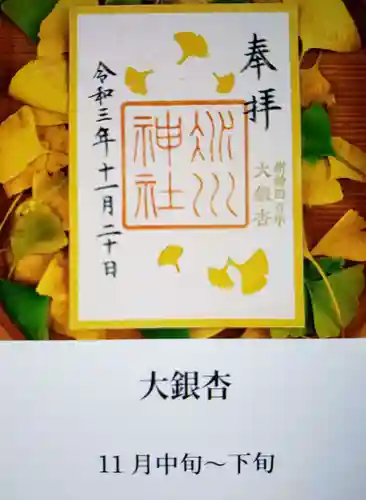 奉拝
大銀杏
川
神社
令和三年十一月二十日
大銀杏
11月中旬～下旬